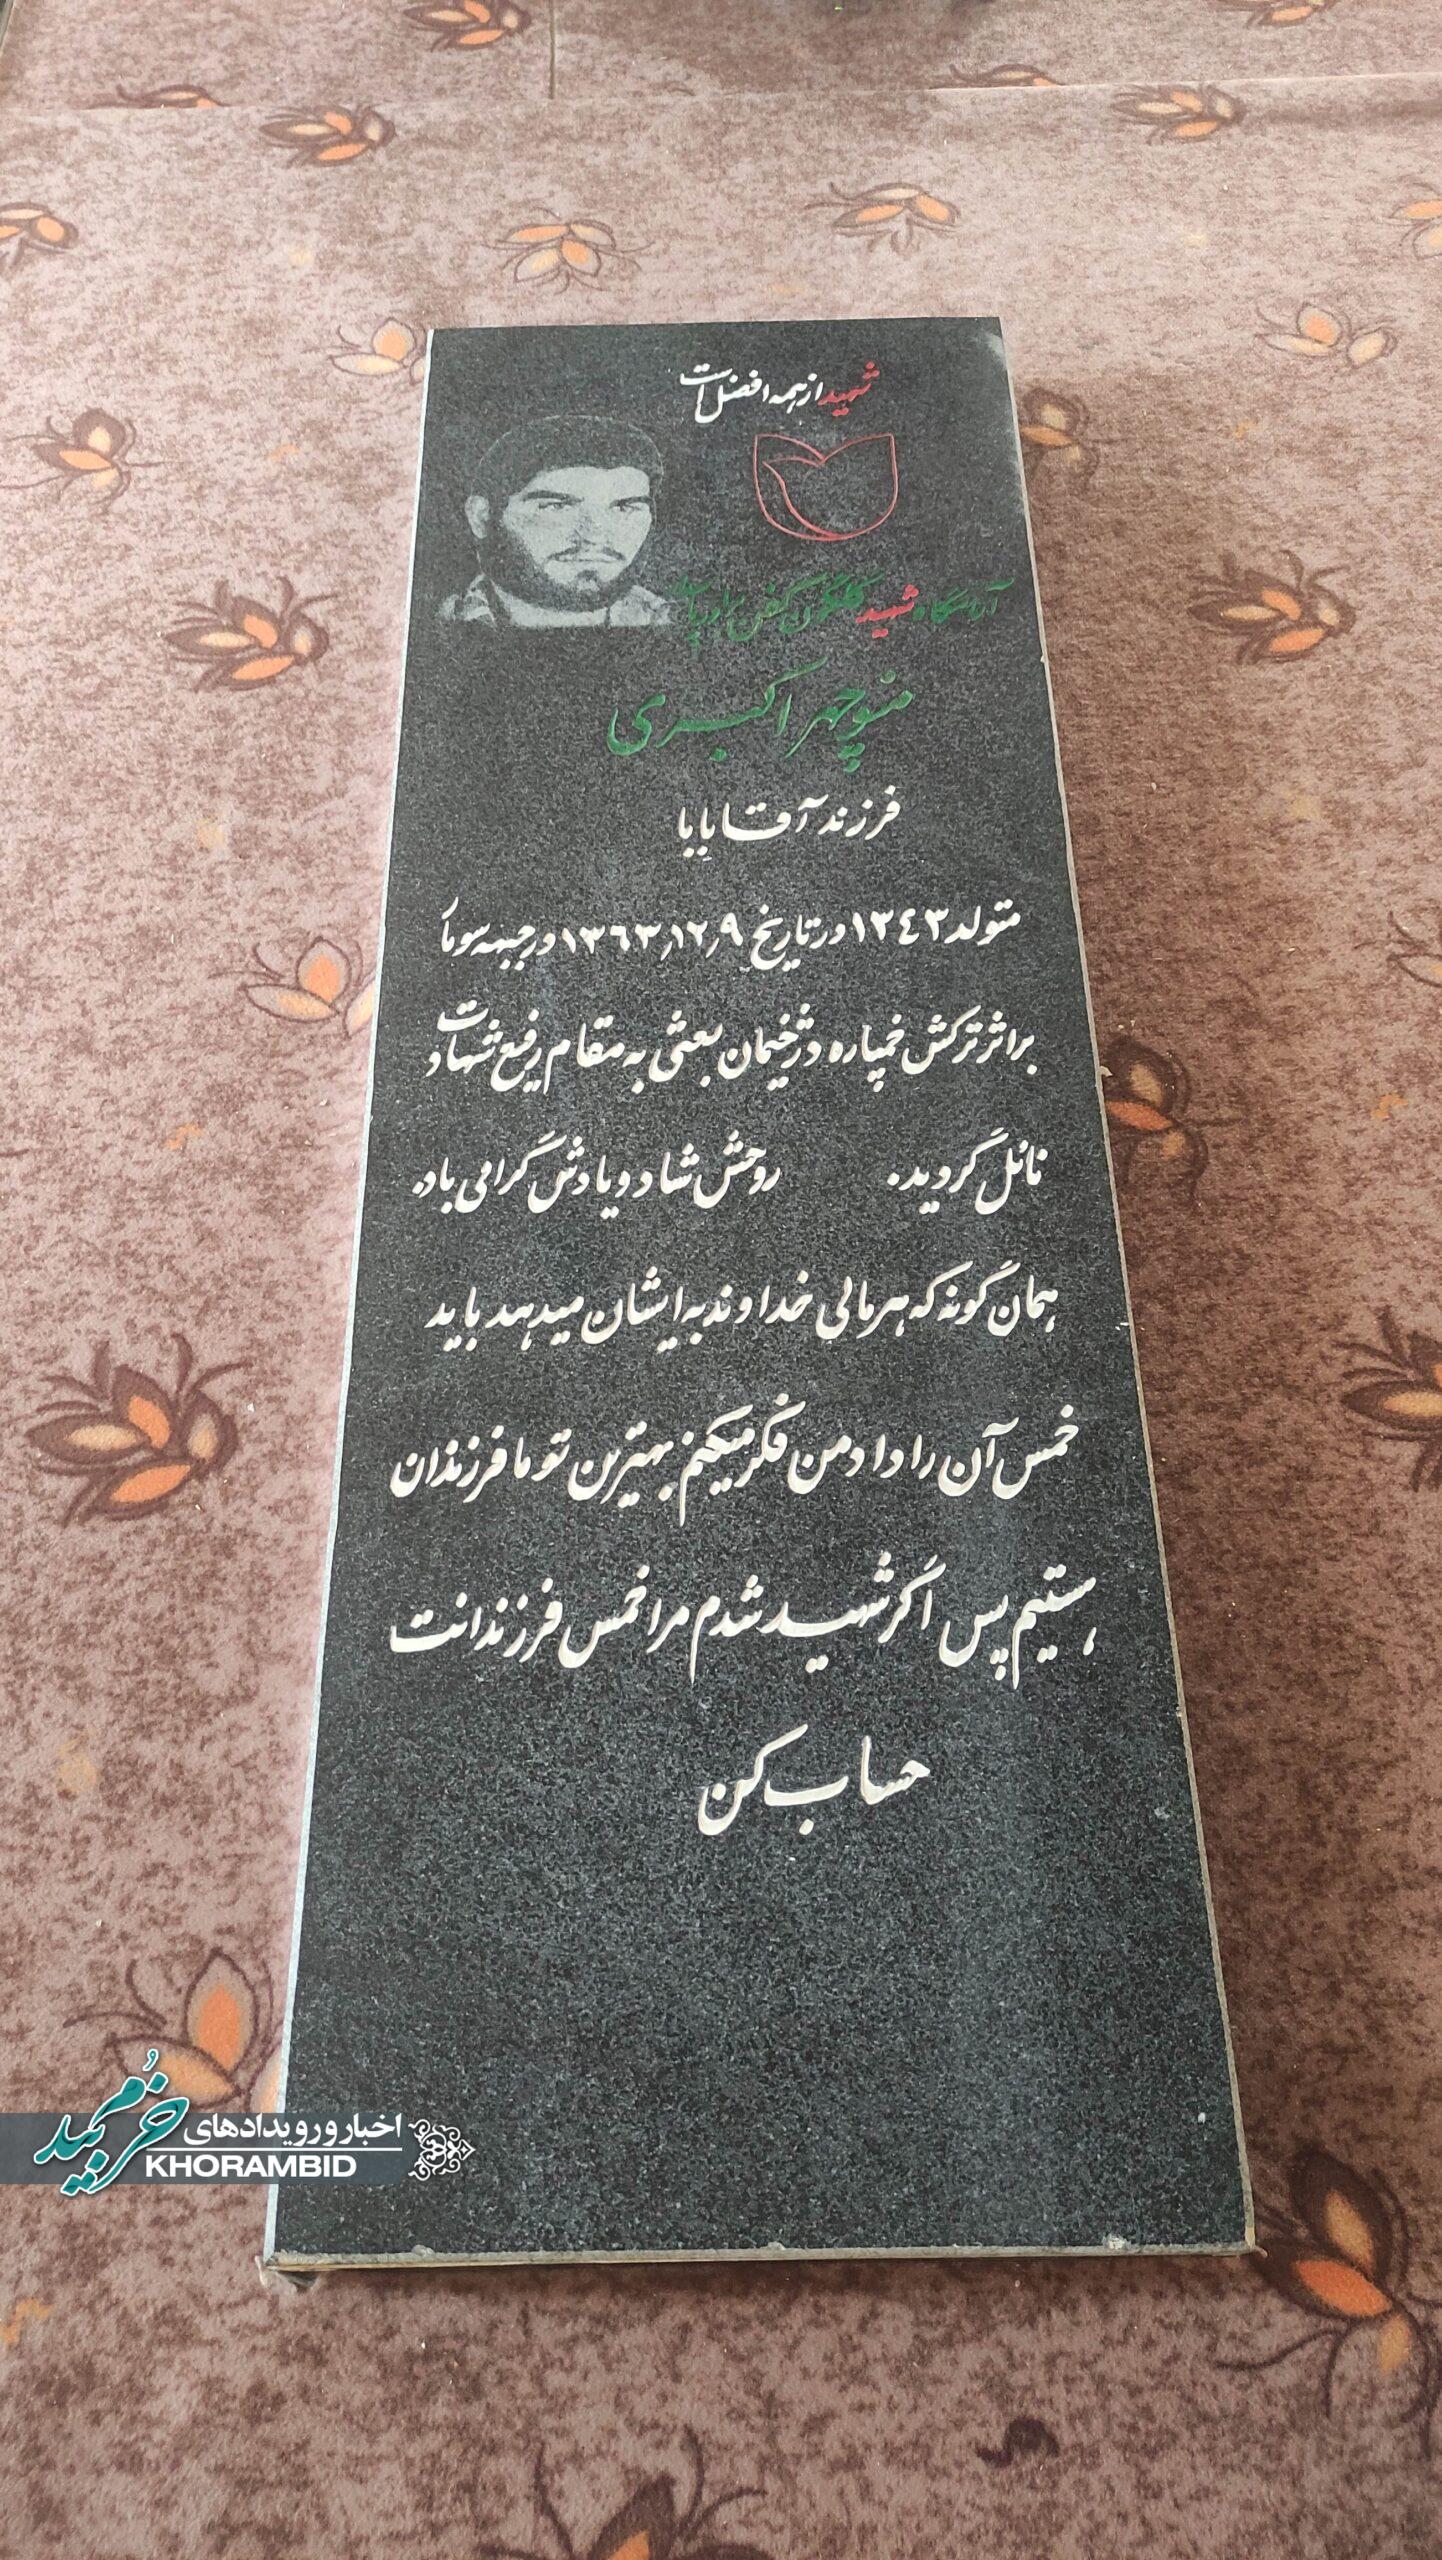 شهید از همه افضل است
آرامگاه شهید گلگون کفن برادر پاسدار
منوچهر اکبری
فرزند آقابابا
متولد ۱۳٤۳ در تاریخ ۱۳٦۳٫۱۲٫۹ در جبهه سومار
بر اثر ترکش خمپاره دژخیمان بعثی به مقام رفیع شهادت
نائل گردید. روحش شاد و یادش گرامی باد.
همان گونه که هر مالی خداوند به ایشان میدهد باید
خمس آن را داد من فکر میکنم بهترین تو ما فرزندان
هستیم پس اگر شهید شدم مرا خمس فرزندانت
حساب کن
اخبار و رویدادهای
خرمبید
KHORAMBID